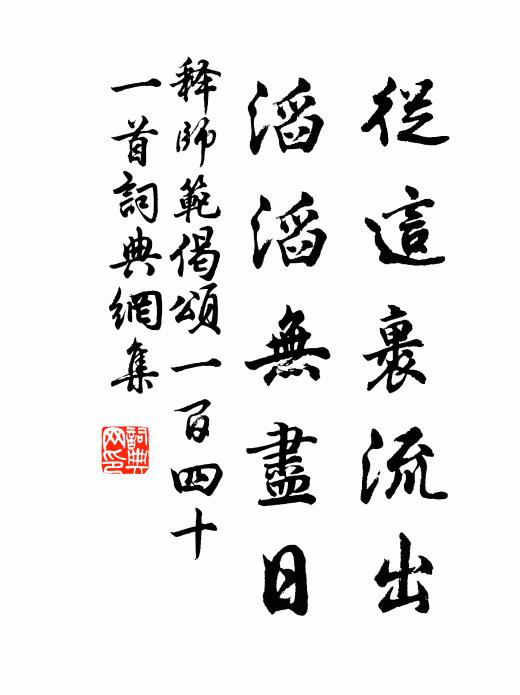 從這裹流出
滔滔無盡日
释師範偈頌一百四十
一首詞典網集
詞典网印